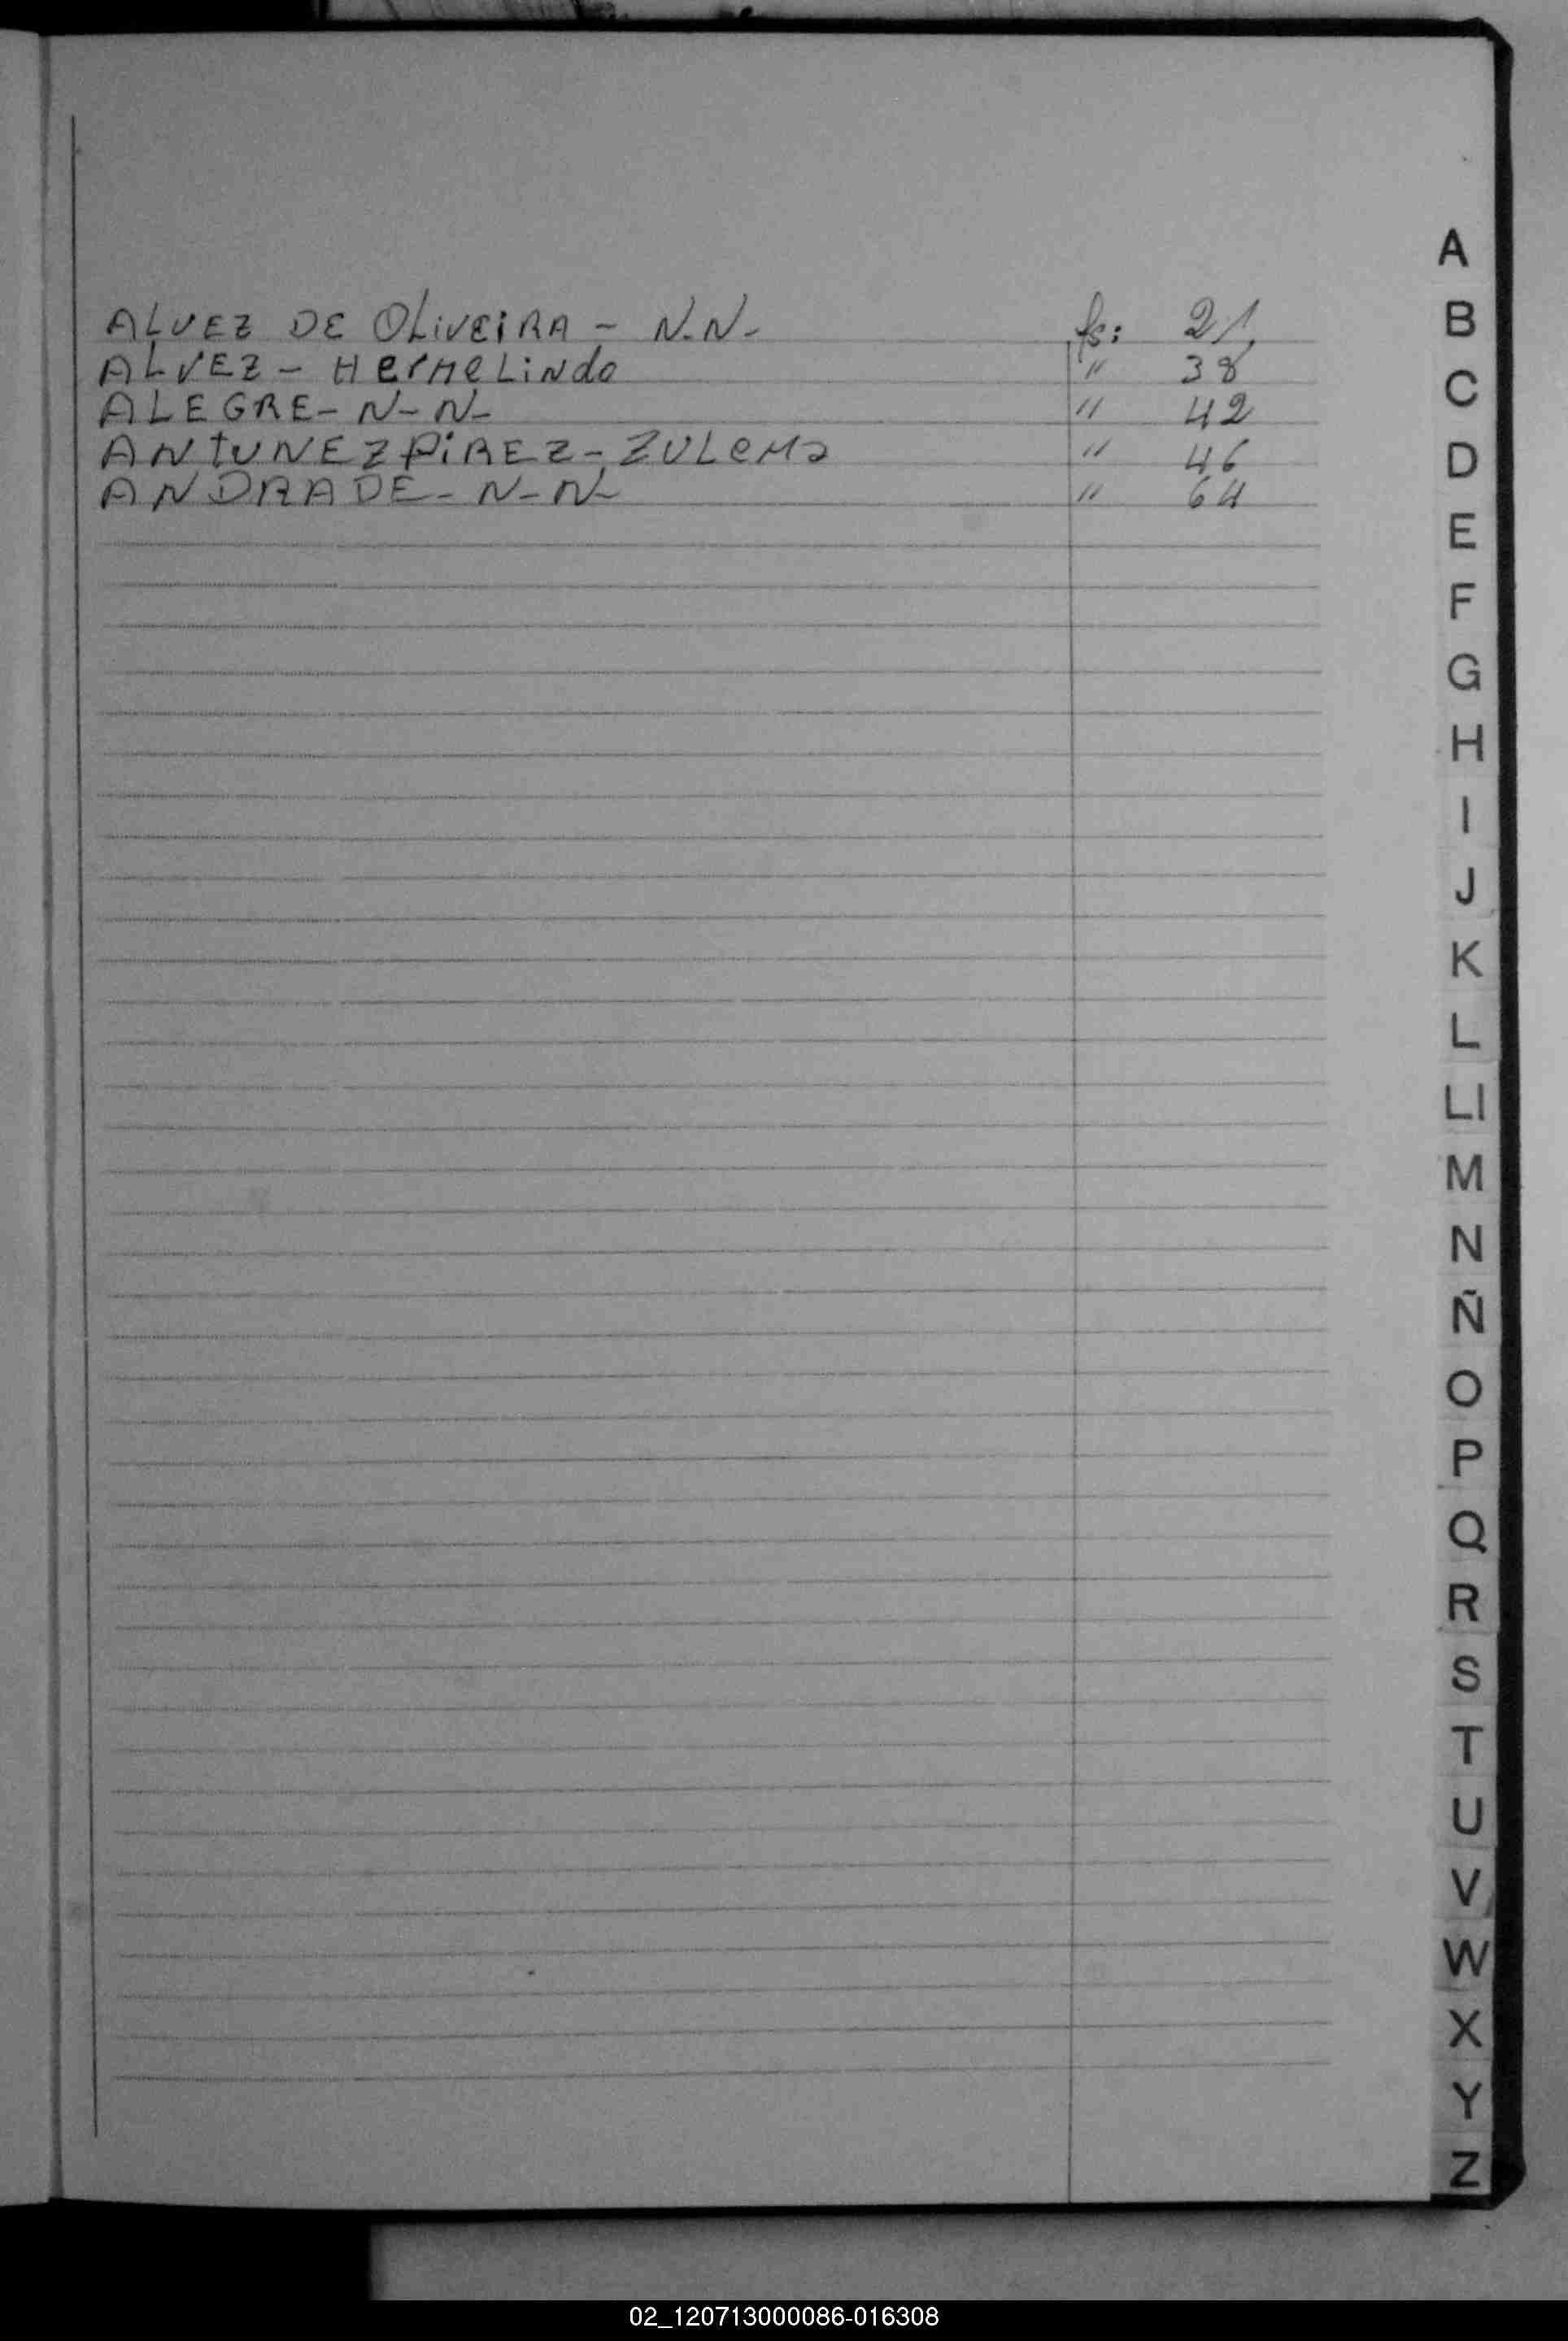 ALVEZ DE OLiVEiRA - N.N- fs: 21
ALVEZ - HerMeLiNdo " 38
ALEGRE - N-N- " 42
ANtUNEZ PiREZ - ZULeMa " 46
ANDRADE - N-N- " 64
A
B
C
D
E
F
G
H
I
J
K
L
Ll
M
N
Ñ
O
P
Q
R
S
T
U
V
W
X
Y
Z
02_120713000086-016308